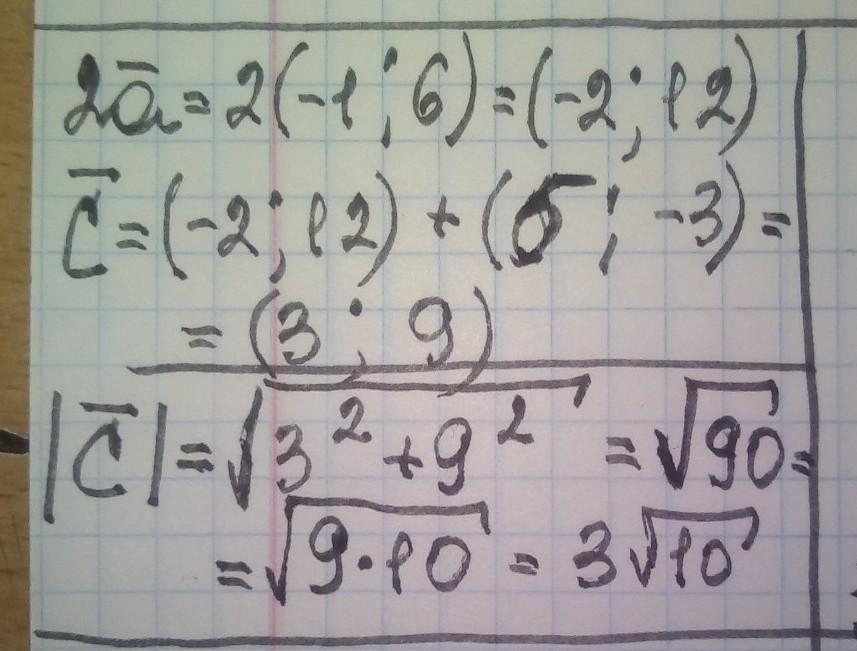 2a̅ = 2(-1; 6) = (-2; 12)
c⃗ = (-2; 12) + (5; -3) =
= (3; 9)
|c⃗| = √(3² + 9²) = √90 =
= √(9·10) = 3√10